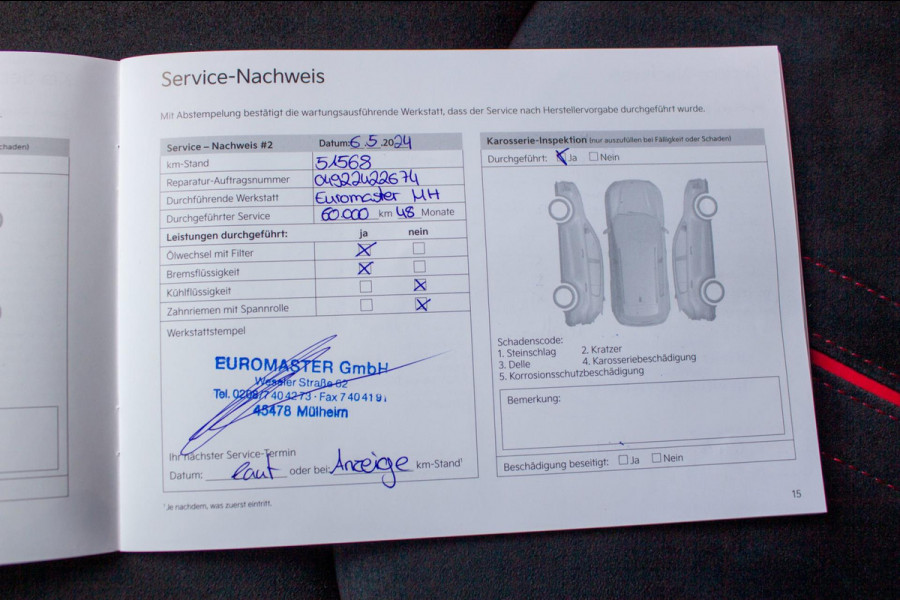 chaden)
Service-Nachweis
Mit Abstempelung bestätigt die wartungsausführende Werkstatt, dass der Service nach Herstellervorgabe durchgeführt wurde.
Service – Nachweis #2 Datum: 6.5.2024
km-Stand 51568
Reparatur-Auftragsnummer 04922422674
Durchführende Werkstatt Euromaster MH
Durchgeführter Service 60000 km 48 Monate
Leistungen durchgeführt: ja nein
Ölwechsel mit Filter
Bremsflüssigkeit
Kühlflüssigkeit
Zahnriemen mit Spannrolle
Werkstattstempel
EUROMASTER GmbH
Weseler Straße 62
Tel. 0208/7 40 42 73 · Fax 7 40 41 91
45478 Mülheim
Ihr nächster Service-Termin
Datum: laut oder bei: Anzeige km-Stand¹
¹Je nachdem, was zuerst eintritt.
Karosserie-Inspektion (nur auszufüllen bei Fälligkeit oder Schaden)
Durchgeführt: Ja Nein
Schadenscode:
1. Steinschlag 2. Kratzer
3. Delle 4. Karosseriebeschädigung
5. Korrosionsschutzbeschädigung
Bemerkung:
Beschädigung beseitigt: Ja Nein
15